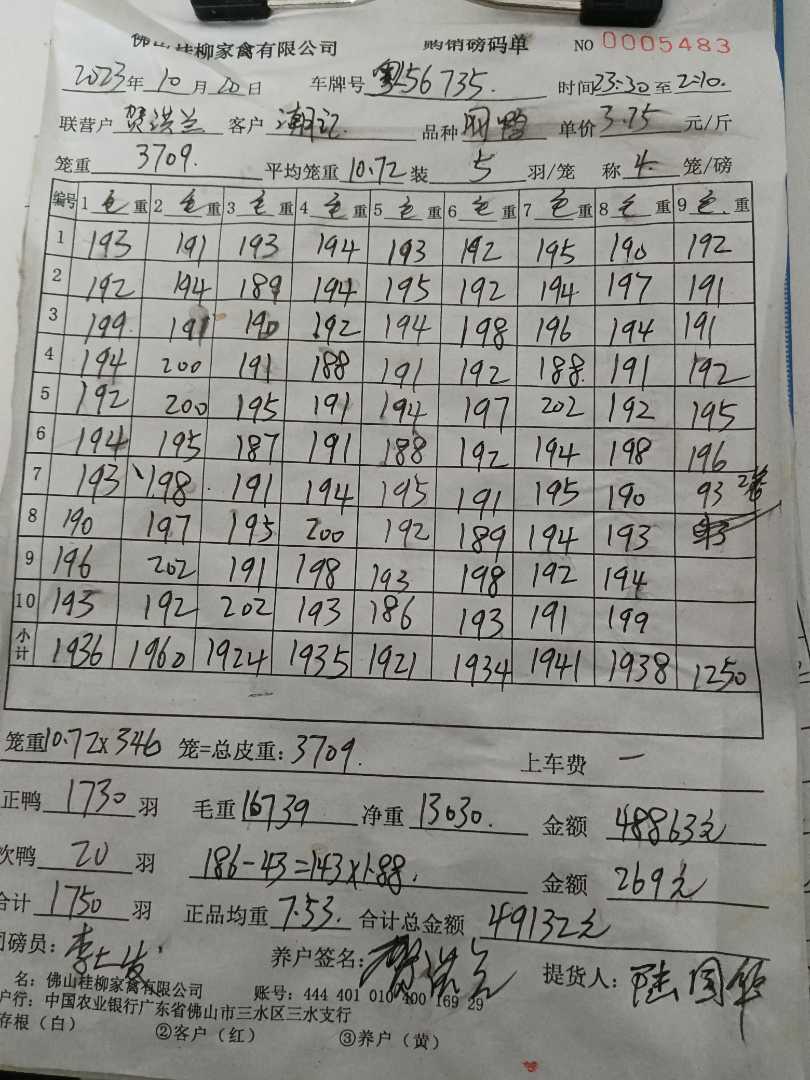 佛山桂柳家禽有限公司 购销磅码单 NO 0005483
2023年10月20日 车牌号 粤L56735. 时间23:30至2:10.
联营户 贺洪兰 客户 潮记 品种 明鸭 单价3.75元/斤
笼重 3709. 平均笼重10.72装 5 羽/笼 称 4. 笼/磅
编号 1 毛重 2 毛重 3 毛重 4 毛重 5 毛重 6 毛重 7 毛重 8 毛重 9 毛重
1 193 191 193 194 193 192 195 190 192
2 192 194 189 194 195 192 194 197 191
3 199. 191 190 192 194 198 196 194 191
4 194 200 191 188 191 192 188. 191 192
5 192 200 195 191 194 197 202 192 195
6 194 195 187 191 188 192 194 198 196
7 193 198. 191 194 195 191 195 190 93 2笼
8 190 197 195 200 192 189 194 193
9 196 202 191 198 193 198 192 194
10 193 192 202 193 186 193 191 199
小计 1936 1960 1924 1935 1921 1934 1941 1938 1250
笼重10.72X346 笼=总皮重:3709. 上车费 一
正鸭 1730 羽 毛重16739 净重13030. 金额 48863元
次鸭 20 羽 186-43=143×1.88. 金额 269元
合计 1750 羽 正品均重7.53. 合计总金额 49132元
司磅员: 养户签名: 贺洪兰 提货人: 陆国华
名:佛山桂柳家禽有限公司 账号:444 401 010 400 169 29
户行:中国农业银行广东省佛山市三水区三水支行
存根(白) ②客户(红) ③养户(黄)